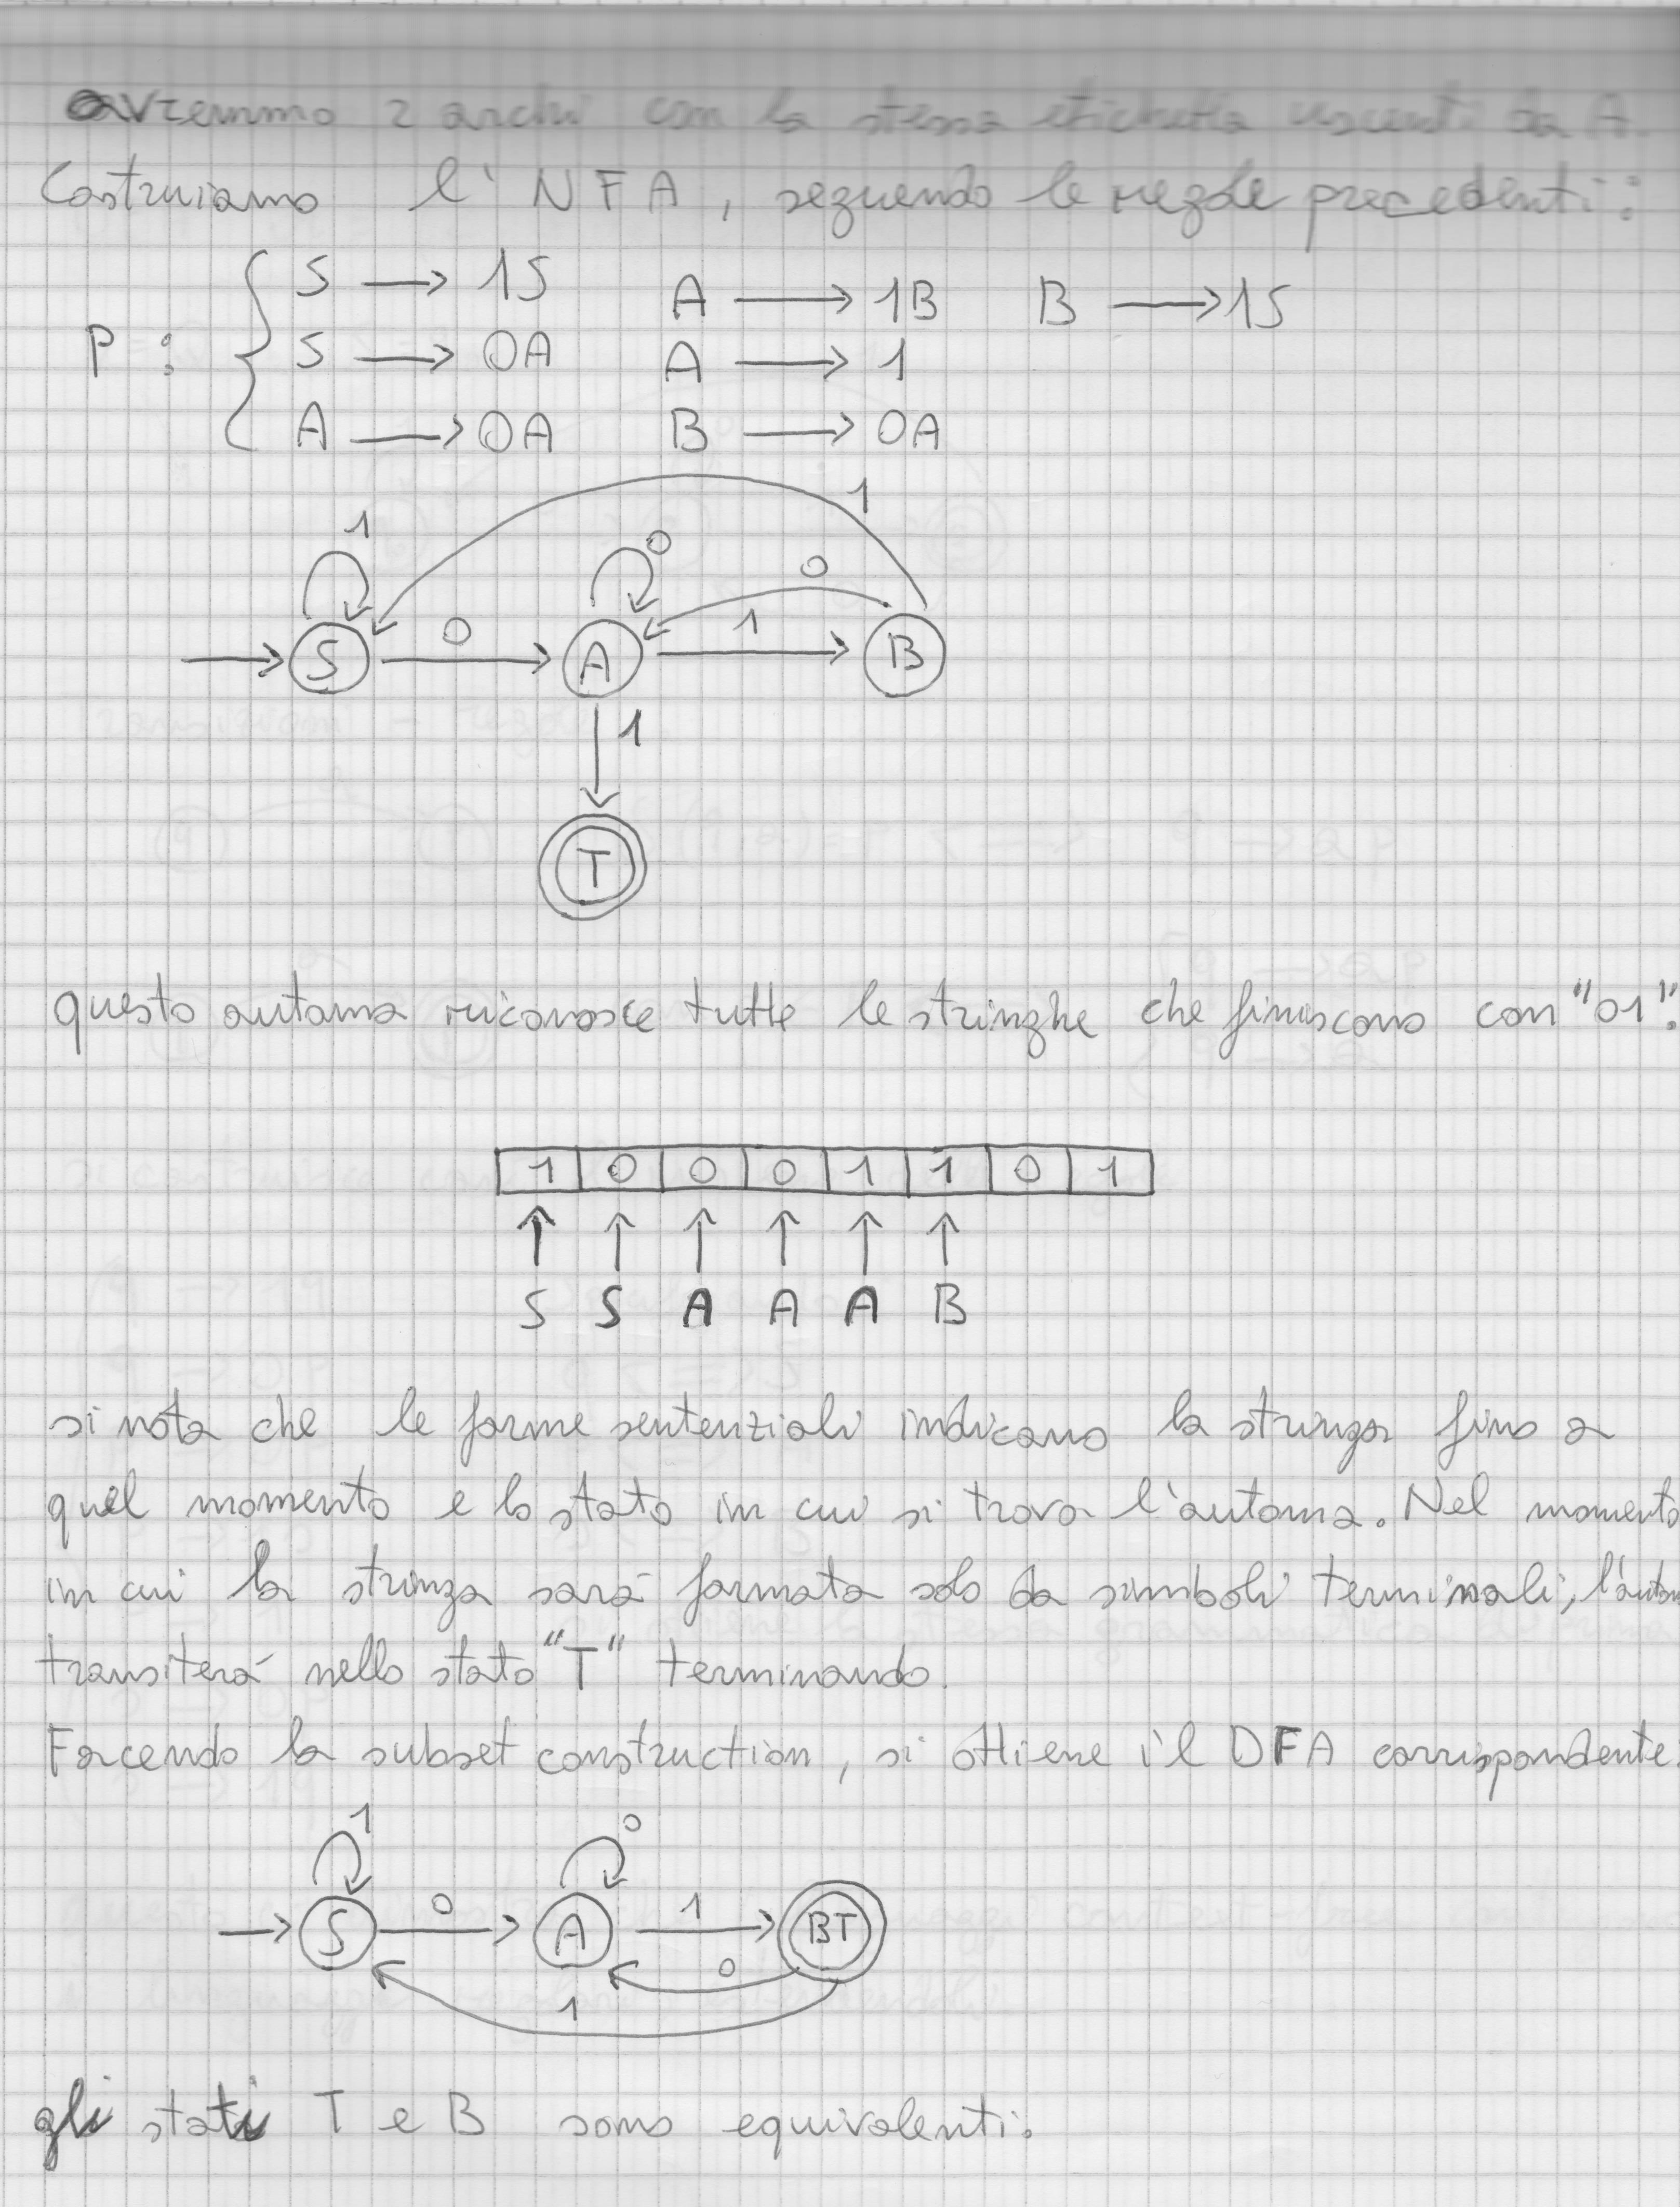 avremmo 2 archi con la stessa etichetta uscenti da A.
Costruiamo l'NFA, seguendo le regole precedenti:
P : { S → 1S A → 1B B → 1S
S → 0A A → 1
A → 0A B → 0A
1
1 0 0
0 1
S A B
1
T
questo automa riconosce tutte le stringhe che finiscono con "01".
1 0 0 0 1 1 0 1
↑ ↑ ↑ ↑ ↑ ↑
S S A A A B
si nota che le forme sentenziali indicano la stringa fino a
quel momento e lo stato in cui si trova l'automa. Nel momento
in cui la stringa sarà formata solo da simboli terminali, l'autom
transiterà nello stato "T" terminando.
Facendo la subset construction, si ottiene il DFA corrispondente:
1 0
0 1
S A BT
0
1
gli stati T e B sono equivalenti.